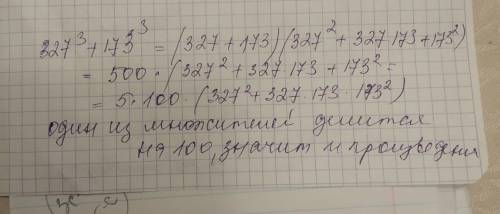 327³ + 173³ = (327 + 173)(327² + 327·173 + 173²)
= 500 · (327² + 327·173 + 173² =
= 5·100 · (327² + 327·173·173²)
один из множителей делится
на 100, значит и произведения